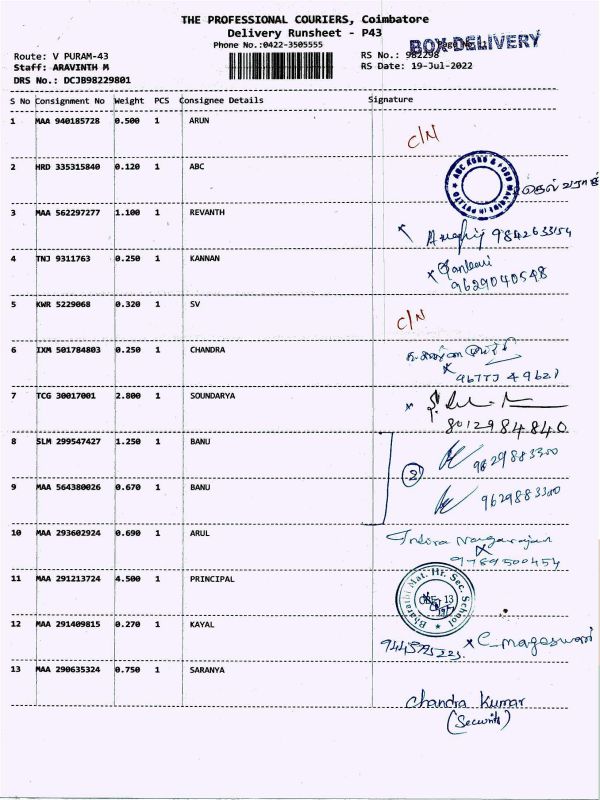 THE PROFESSIONAL COURIERS, Coimbatore
Delivery Runsheet - P43
Phone No.:0422-3505555
BOX DELIVERY
Route: V PURAM-43
RS No.: 982298
Staff: ARAVINTH M
RS Date: 19-Jul-2022
DRS No.: DCJB98229801
S No Consignment No Weight PCS Consignee Details Signature
1 MAA 940185728 0.500 1 ARUN
C/N
2 HRD 335315840 0.120 1 ABC
3 MAA 562297277 1.100 1 REVANTH
9842633154
4 TNJ 9311763 0.250 1 KANNAN
9629040548
5 KWR 5229068 0.320 1 SV
C/N
6 IXM 501784803 0.250 1 CHANDRA
7 TCG 30017001 2.800 1 SOUNDARYA
8012984840
8 SLM 299547427 1.250 1 BANU
9829883300
2
9 MAA 564380026 0.670 1 BANU
9629883300
10 MAA 293602924 0.690 1 ARUL
Indira Nangarajan
9789500454
11 MAA 291213724 4.500 1 PRINCIPAL
Bharathi Mat. Hr. Sec. School
12 MAA 291409815 0.270 1 KAYAL
C. Mageswari
13 MAA 290635324 0.750 1 SARANYA
Chandra Kumar
(Security)